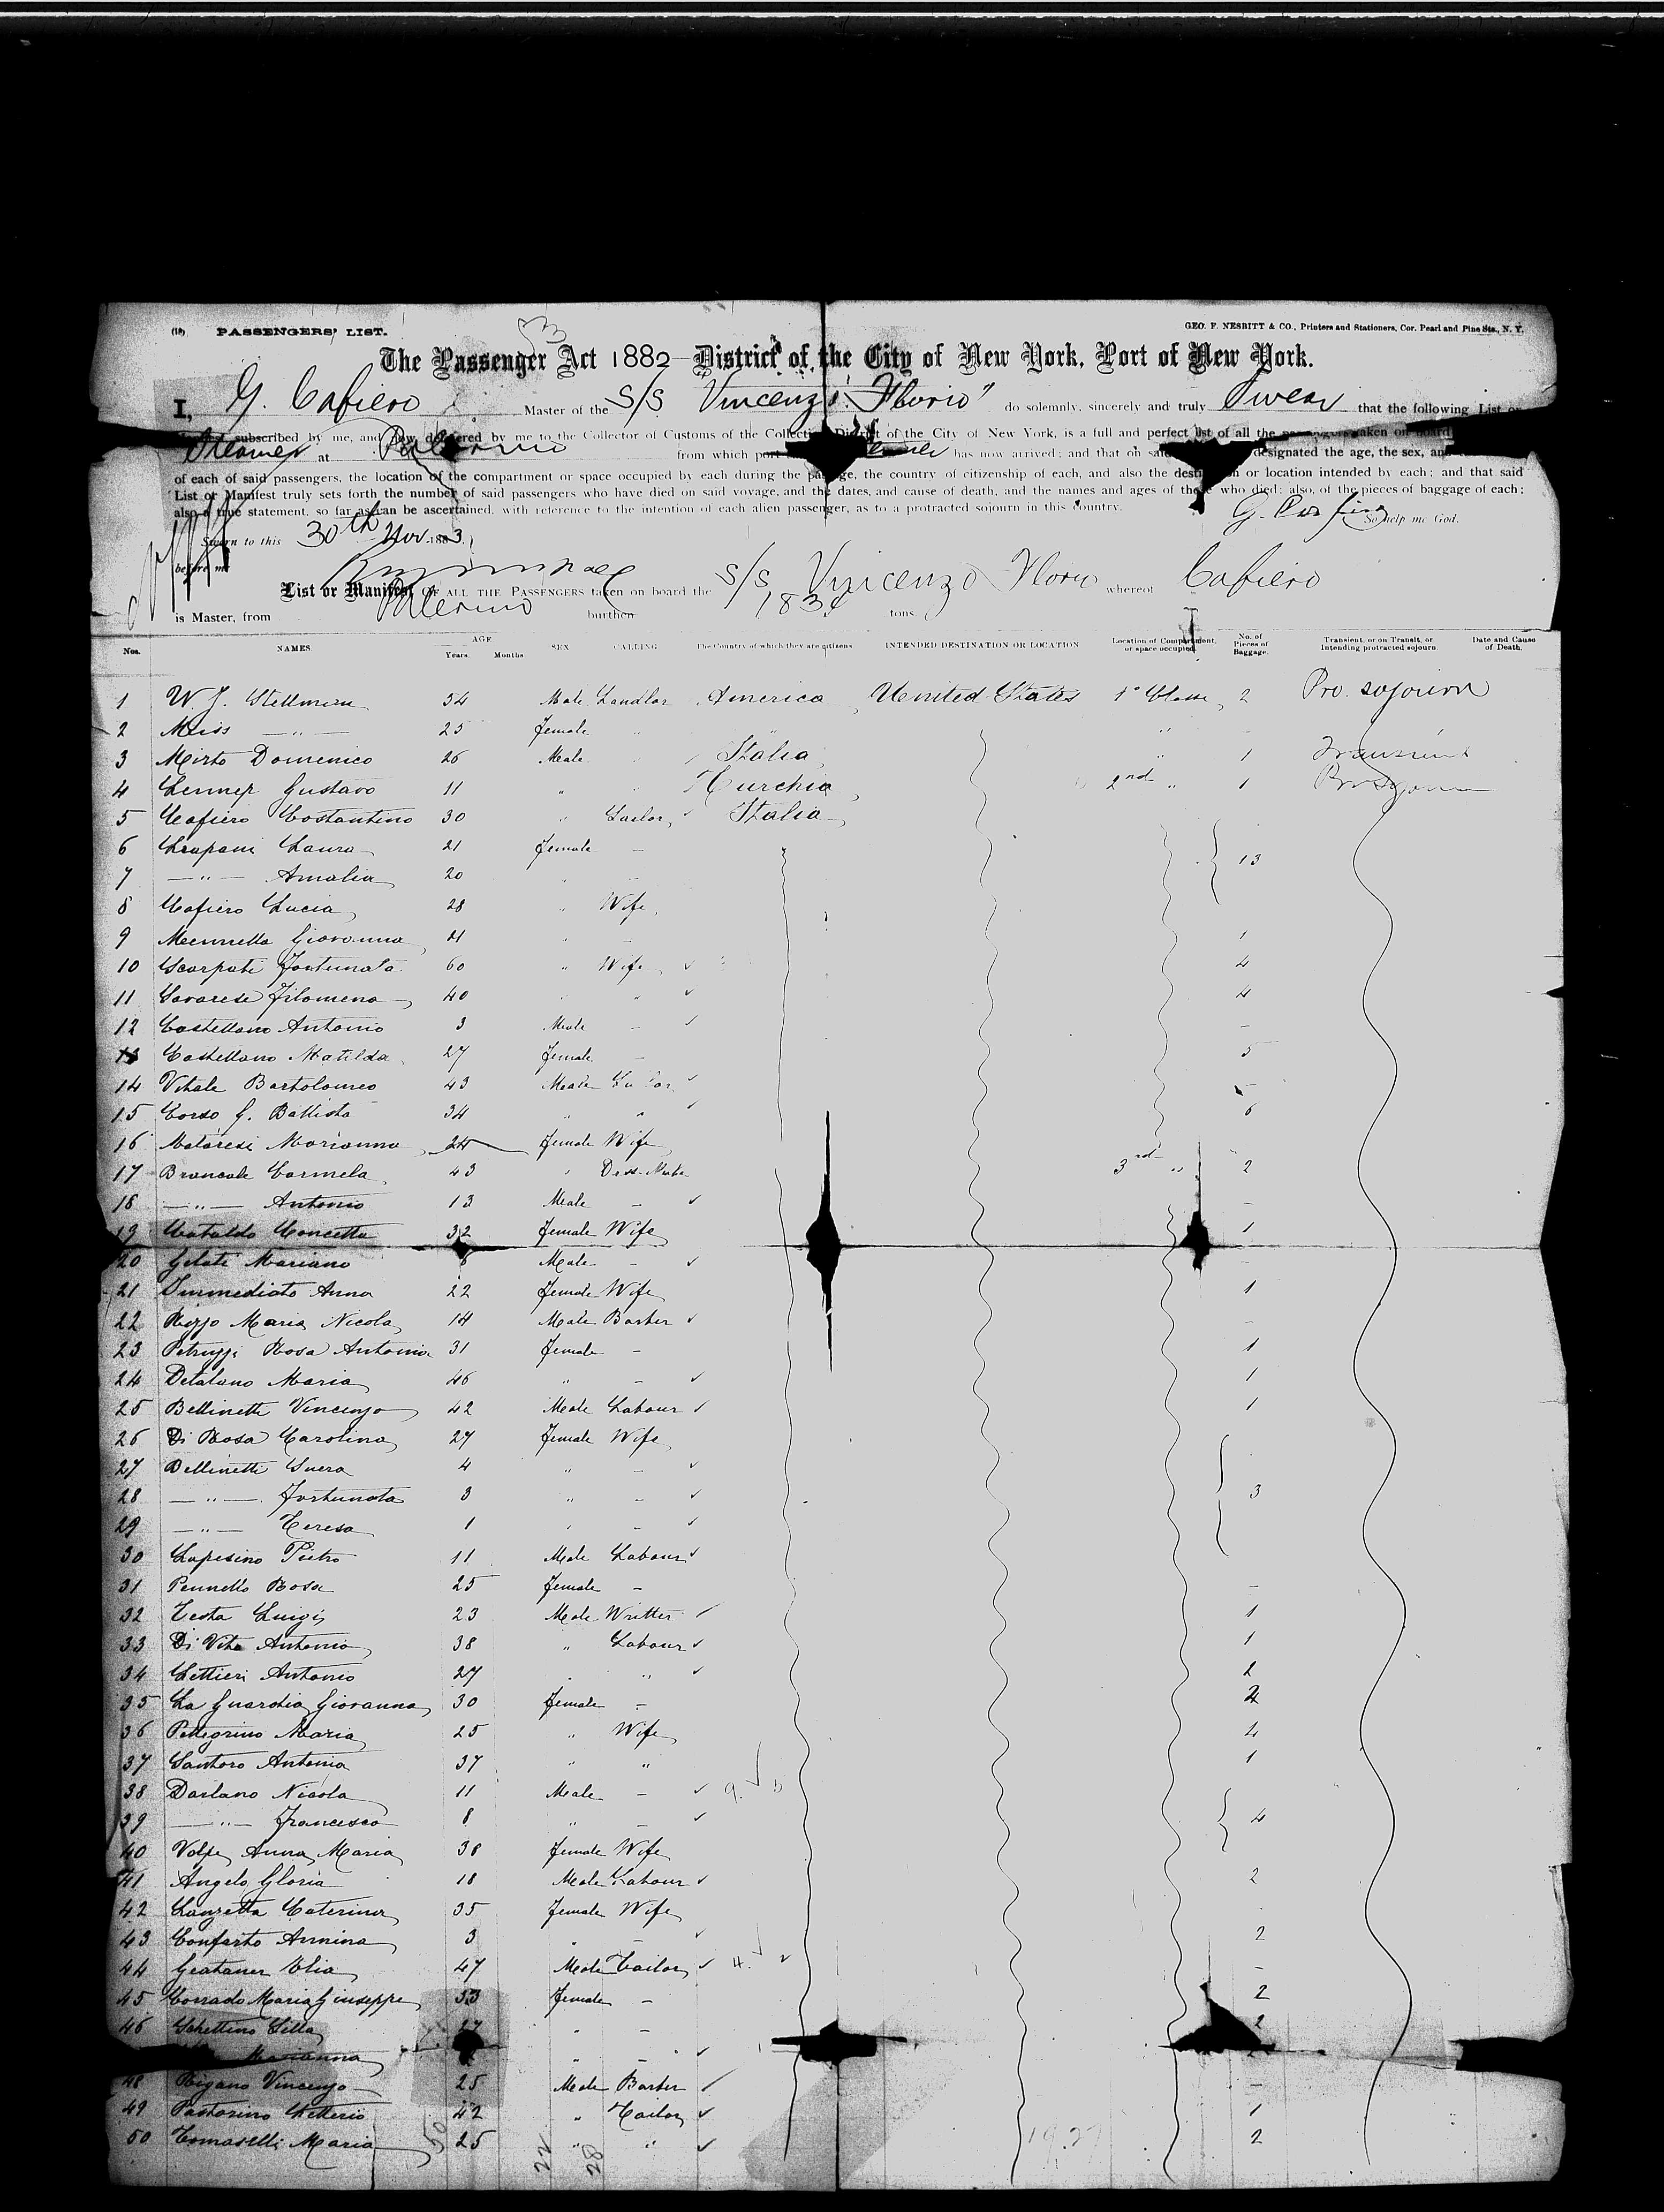 (18) PASSENGERS' LIST.
GEO. F. NESBITT & CO., Printers and Stationers, Cor. Pearl and Pine Sts., N. Y.
The Passenger Act 1882 District of the City of New York, Port of New York.
I, G. Cafiero Master of the S/S Vincenzo Florio" do solemnly, sincerely and truly Swear that the following List or
subscribed by me, and now delivered by me to the Collector of Customs of the Collection District of the City of New York, is a full and perfect list of all the passengers taken on board
Steamer at Palermo from which port has now arrived; and that on said designated the age, the sex, and
of each of said passengers, the location of the compartment or space occupied by each during the passage, the country of citizenship of each, and also the destination or location intended by each; and that said
List or Manifest truly sets forth the number of said passengers who have died on said voyage, and the dates, and cause of death, and the names and ages of those who died; also, of the pieces of baggage of each;
also a true statement, so far as can be ascertained, with reference to the intention of each alien passenger, as to a protracted sojourn in this country. So help me God.
G. Cafiero
Sworn to this 30th Nov. 1883.
before me
List or Manifest OF ALL THE PASSENGERS taken on board the S/S Vincenzo Florio whereof Cafiero
is Master, from Palermo burthen tons
Nos. NAMES. AGE Years. Months SEX CALLING The Country of which they are citizens INTENDED DESTINATION OR LOCATION Location of Compartment, or space occupied No. of Pieces of Baggage. Transient, or on Transit, or Intending protracted sojourn. Date and Cause of Death.
1 W. J. Stellmem 34 Male Landlor America United States 1° Classe 2 Pro. sojourn
2 Miss — " — 25 Female " "
3 Mirto Domenico 26 Male " Italia " 1 Transient
4 Lenner Gustavo 11 " " Turchia 2nd " 1
5 Cafiero Costantino 30 " Sailor Italia
6 Trapani Laura 21 Female — 13
7 — " — Amalia 20 " —
8 Cafiero Lucia 28 " Wife
9 Mennella Giovanna 21 " — 1
10 Scarpati Fortunata 60 " Wife 4
11 Savarese Filomena 40 " " 4
12 Castellano Antonio 3 Male — —
13 Castellano Matilda 27 Female — 5
14 Vitale Bartolomeo 43 Male Sailor —
15 Corso G. Battista 34 " " 6
16 Mataresi Marianna 24 Female Wife
17 Brancale Carmela 43 " Dress-Maker 3rd " 2
18 — " — Antonio 13 Male — —
19 Cataldo Concetta 32 Female Wife 1
20 Gelati Mariano 6 Male — —
21 Immediato Anna 22 Female Wife 1
22 Rizzo Maria Nicola 14 Male Barber —
23 Petruzzi Rosa Antonia 31 Female — 1
24 Detalano Maria 46 " — 1
25 Bellinetti Vincenzo 42 Male Labour 1
26 Di Rosa Carolina 27 Female Wife
27 Bellinetti 4 " —
28 — " — Fortunata 3 " — 3
29 — " — Teresa 1 " —
30 Lapesino Pietro 11 Male Labour
31 Pennella Rosa 25 Female — —
32 Testa Luigi 23 Male Writter 1
33 Di Vita Antonio 38 " Labour 1
34 Lettieri Antonio 27 " " 2
35 La Guardia Giovanna 30 Female — 2
36 Pellegrino Maria 25 " Wife 4
37 Santoro Antonia 37 " " 1
38 Darlano Nicola 11 Male —
39 — " — Francesco 8 " — 4
40 Volpe Anna Maria 38 Female Wife
41 Angelo Gloria 18 Male Labour 2
42 Lanzetta Caterina 35 Female Wife
43 Conforto Annina 3 " — 2
44 Geataner Elia 47 Male Tailor —
45 Corrado Maria Giuseppe 33 Female — 2
46 Schettino Lilla 27 " — 2
Marianna " —
48 Rigano Vincenzo 25 Male Barber —
49 Pastorino Letterio 42 " Tailor 1
50 Tomaselli Maria 25 " " 2
50 22 28